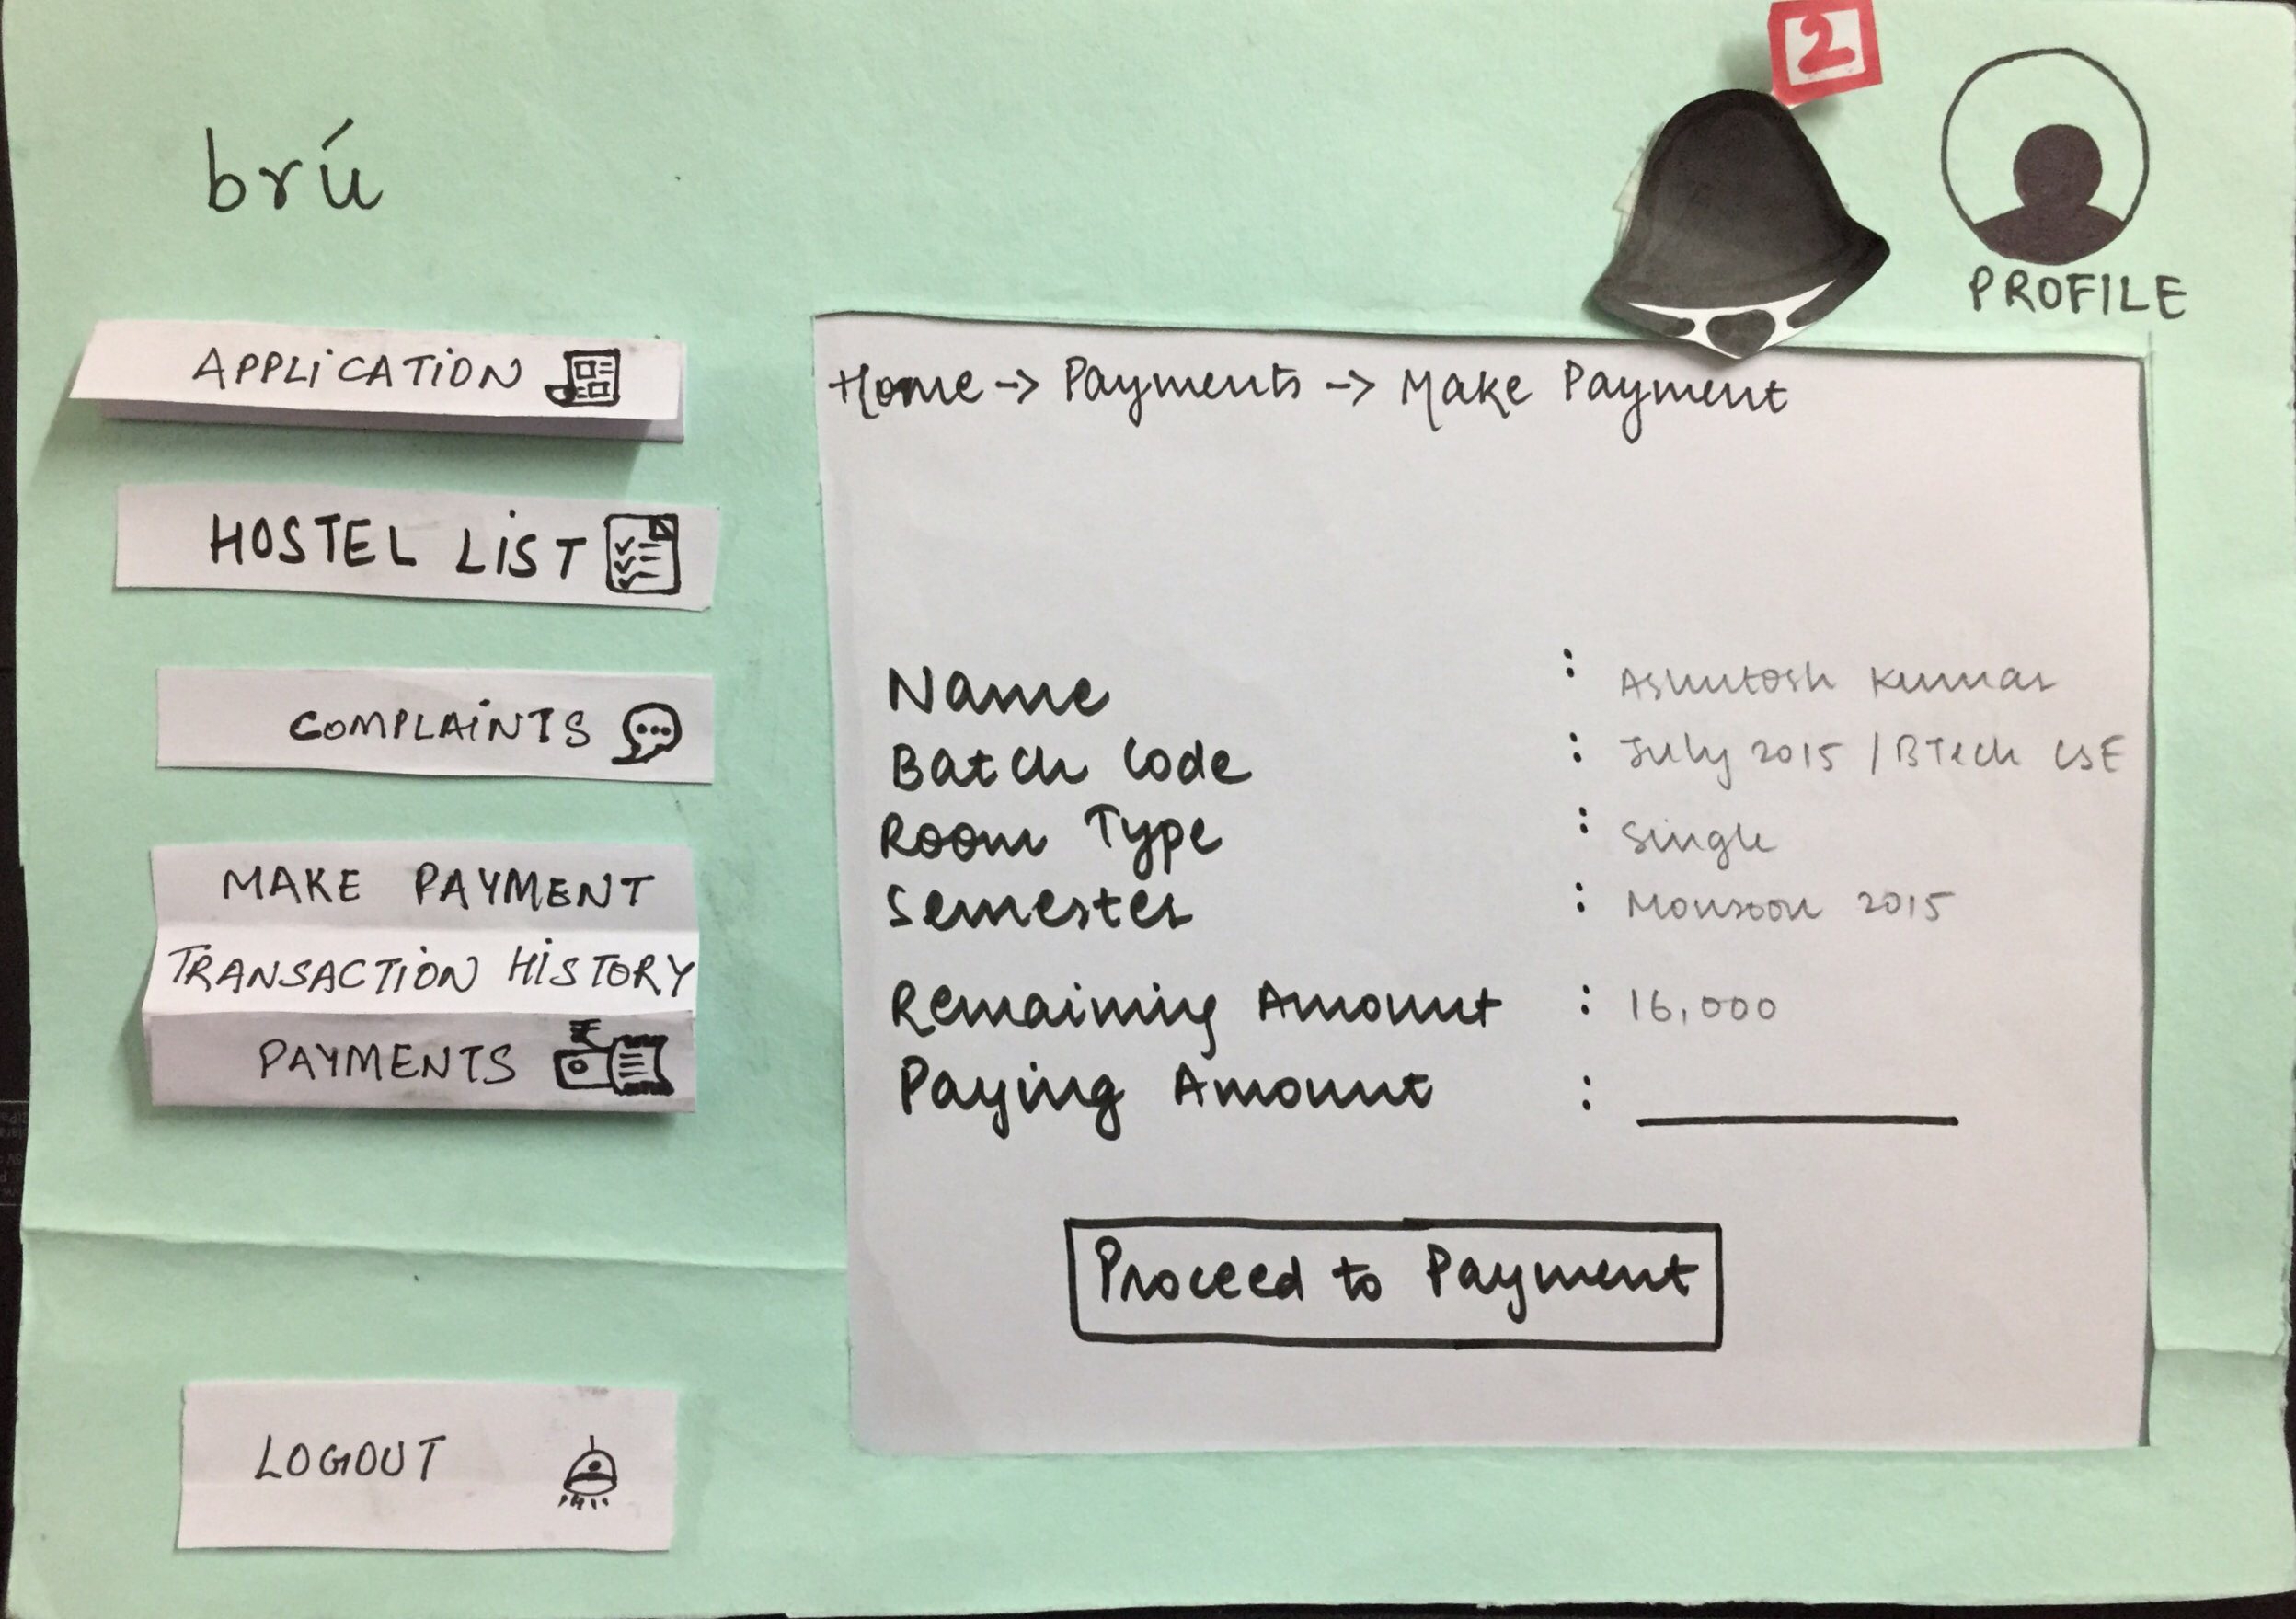 2
brú
PROFILE
APPLiCATiON
HOSTEL LiST
COMPLAiNTS
MAKE PAYMENT
TRANSACTiON HiSTORY
PAYMENTS ₹
LOGOUT
Home -> Payments -> Make Payment
Name : Ashutosh Kumar
Batch Code : July 2015 / BTech CSE
Room Type : Single
Semester : Monsoon 2015
Remaining Amount : 16,000
Paying Amount :
Proceed to Payment